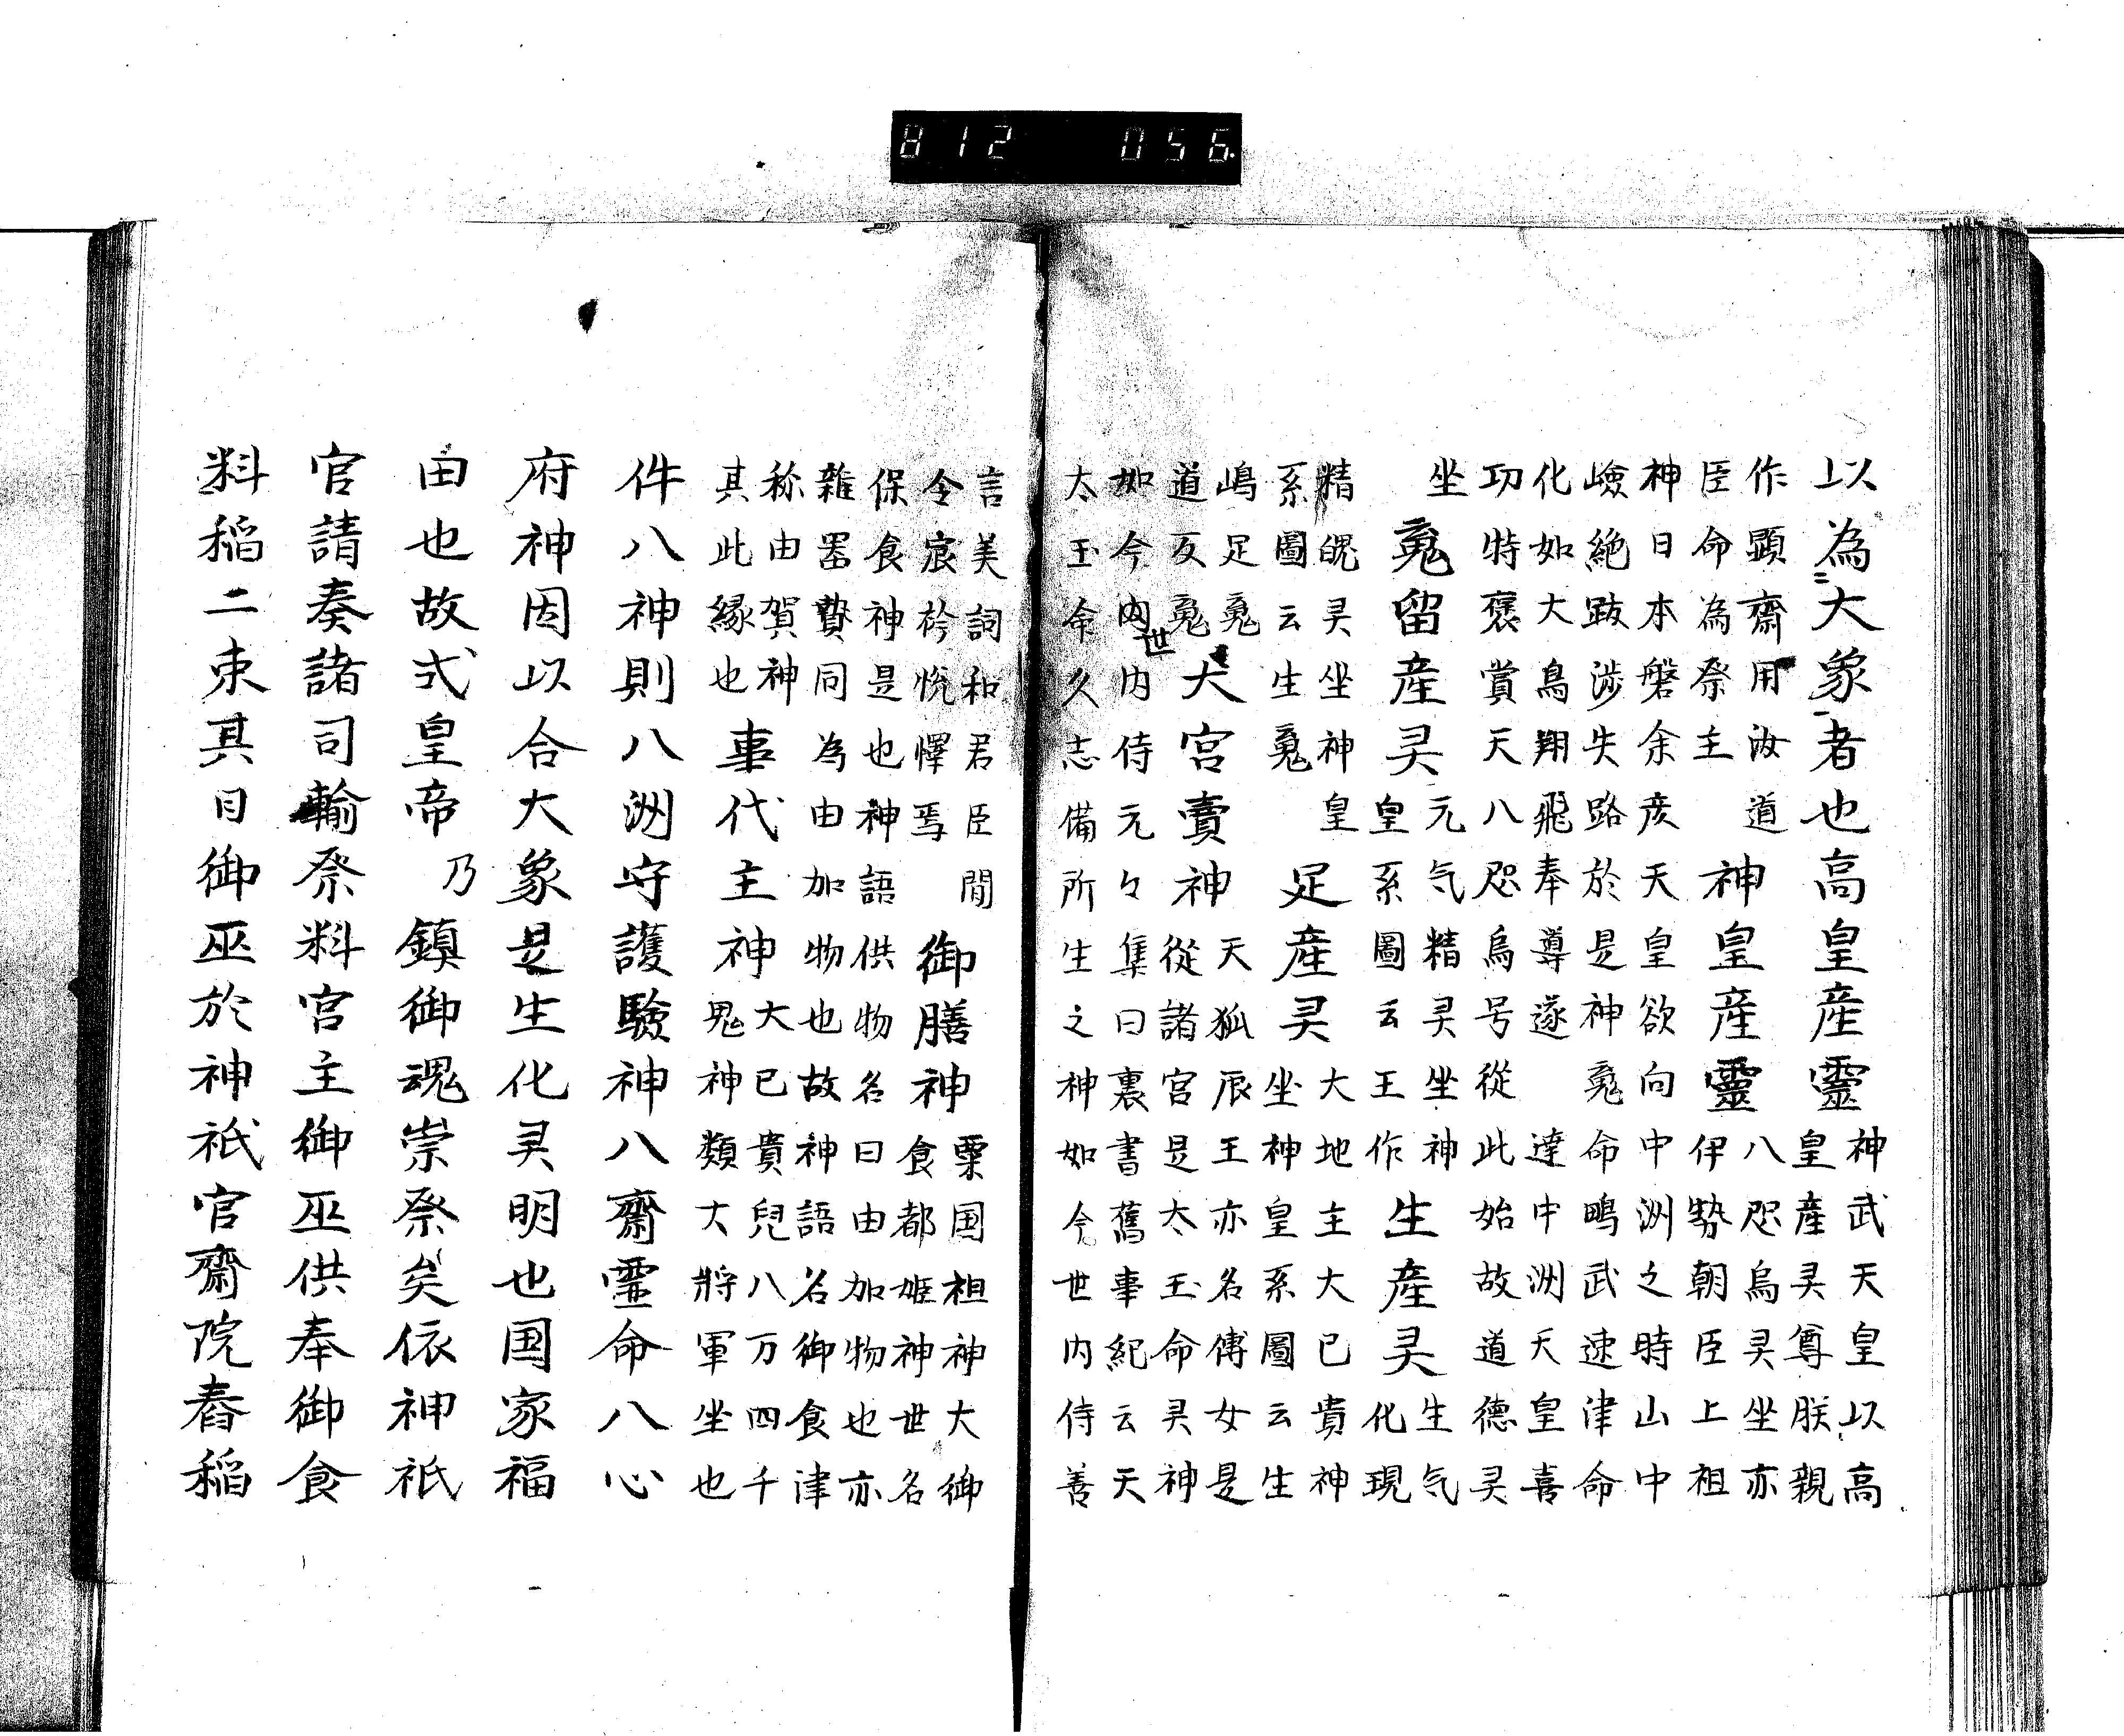 812 056
以為大象者也高皇産靈
神武天皇以高
皇産灵尊朕親
作顕齋用汝道
臣命為祭主
神皇産靈
八咫烏灵坐亦
伊勢朝臣上祖
神日本磐余彦天皇欲向中洲之時山中
嶮絶跋渉失路於是神䰟命鴨武速津命
化如大鳥翔飛奉導遂達中洲天皇喜
功特褒賞天八咫烏号從此始故道德灵
坐
䰟留産灵
元气精灵坐神
皇系圖云王作
生産灵
生气
化現
精魄灵坐神皇
系圖云生䰟
足産灵
大地主大已貴神
坐神皇系圖云生
嶋足䰟
道反䰟
大宮賣神
天狐辰王亦名傳女是
從諸宮是太玉命灵神
如今内世内侍元々集曰裏書舊事紀云天
太玉命久志備所生之神如今世内侍善
言美詞和君臣間
令宸衿悦懌焉
御膳神
粟国祖神大御
食都姫神世名
保食神是也神語供物名曰由加物也亦
雜器贄同為由加物也故神語名御食津
称由賀神
其此縁也
事代主神
大已貴兒八万四千
鬼神類大將軍坐也
件八神則八洲守護驗神八齋霊命八心
府神因以合大象是生化灵明也国家福
由也故弍皇帝乃鎮御魂崇祭矣依神祇
官請奏諸司輸祭料宮主御巫供奉御食
料稲二束其日御巫於神祇官齋院舂稲